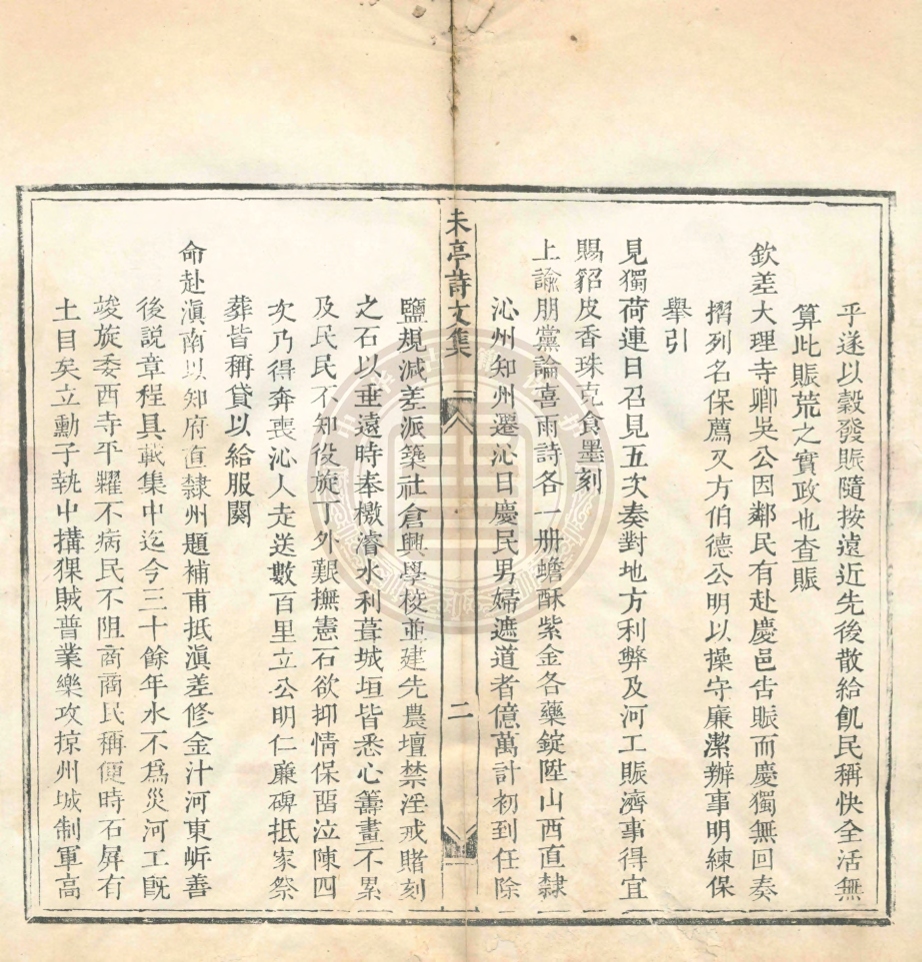 乎遂以穀發賑隨按遠近先後散給飢民稱快全活無
算此賑荒之實政也查賑
欽差大理寺卿吳公因鄰民有赴慶邑告賑而慶獨無回奏
摺列名保薦又方伯德公明以操守廉潔辦事明練保
舉引
見獨荷連日召見五次奏對地方利弊及河工賑濟事得宜
賜貂皮香珠克食墨刻
上諭朋黨論喜雨詩各一册蟾酥紫金各藥錠陞山西直隸
沁州知州遷沁日慶民男婦遮道者億萬計初到任除
未亭詩文集
二
鹽規減差派築社倉興學校並建先農壇禁淫戒賭刻
之石以垂遠時奉檄濬水利葺城垣皆悉心籌畫不累
及民民不知役旋丁外艱撫憲石欲抑情保畱泣陳四
次乃得奔喪沁人走送數百里立公明仁廉碑抵家祭
葬皆稱貸以給服闋
命赴滇南以知府直隸州題補甫抵滇差修金汁河東岸善
後説章程具載集中迄今三十餘年水不爲災河工旣
竣旋委西寺平糶不病民不阻商商民稱便時石屏有
土目矣立勳子執中搆猓賊普業樂攻掠州城制軍高